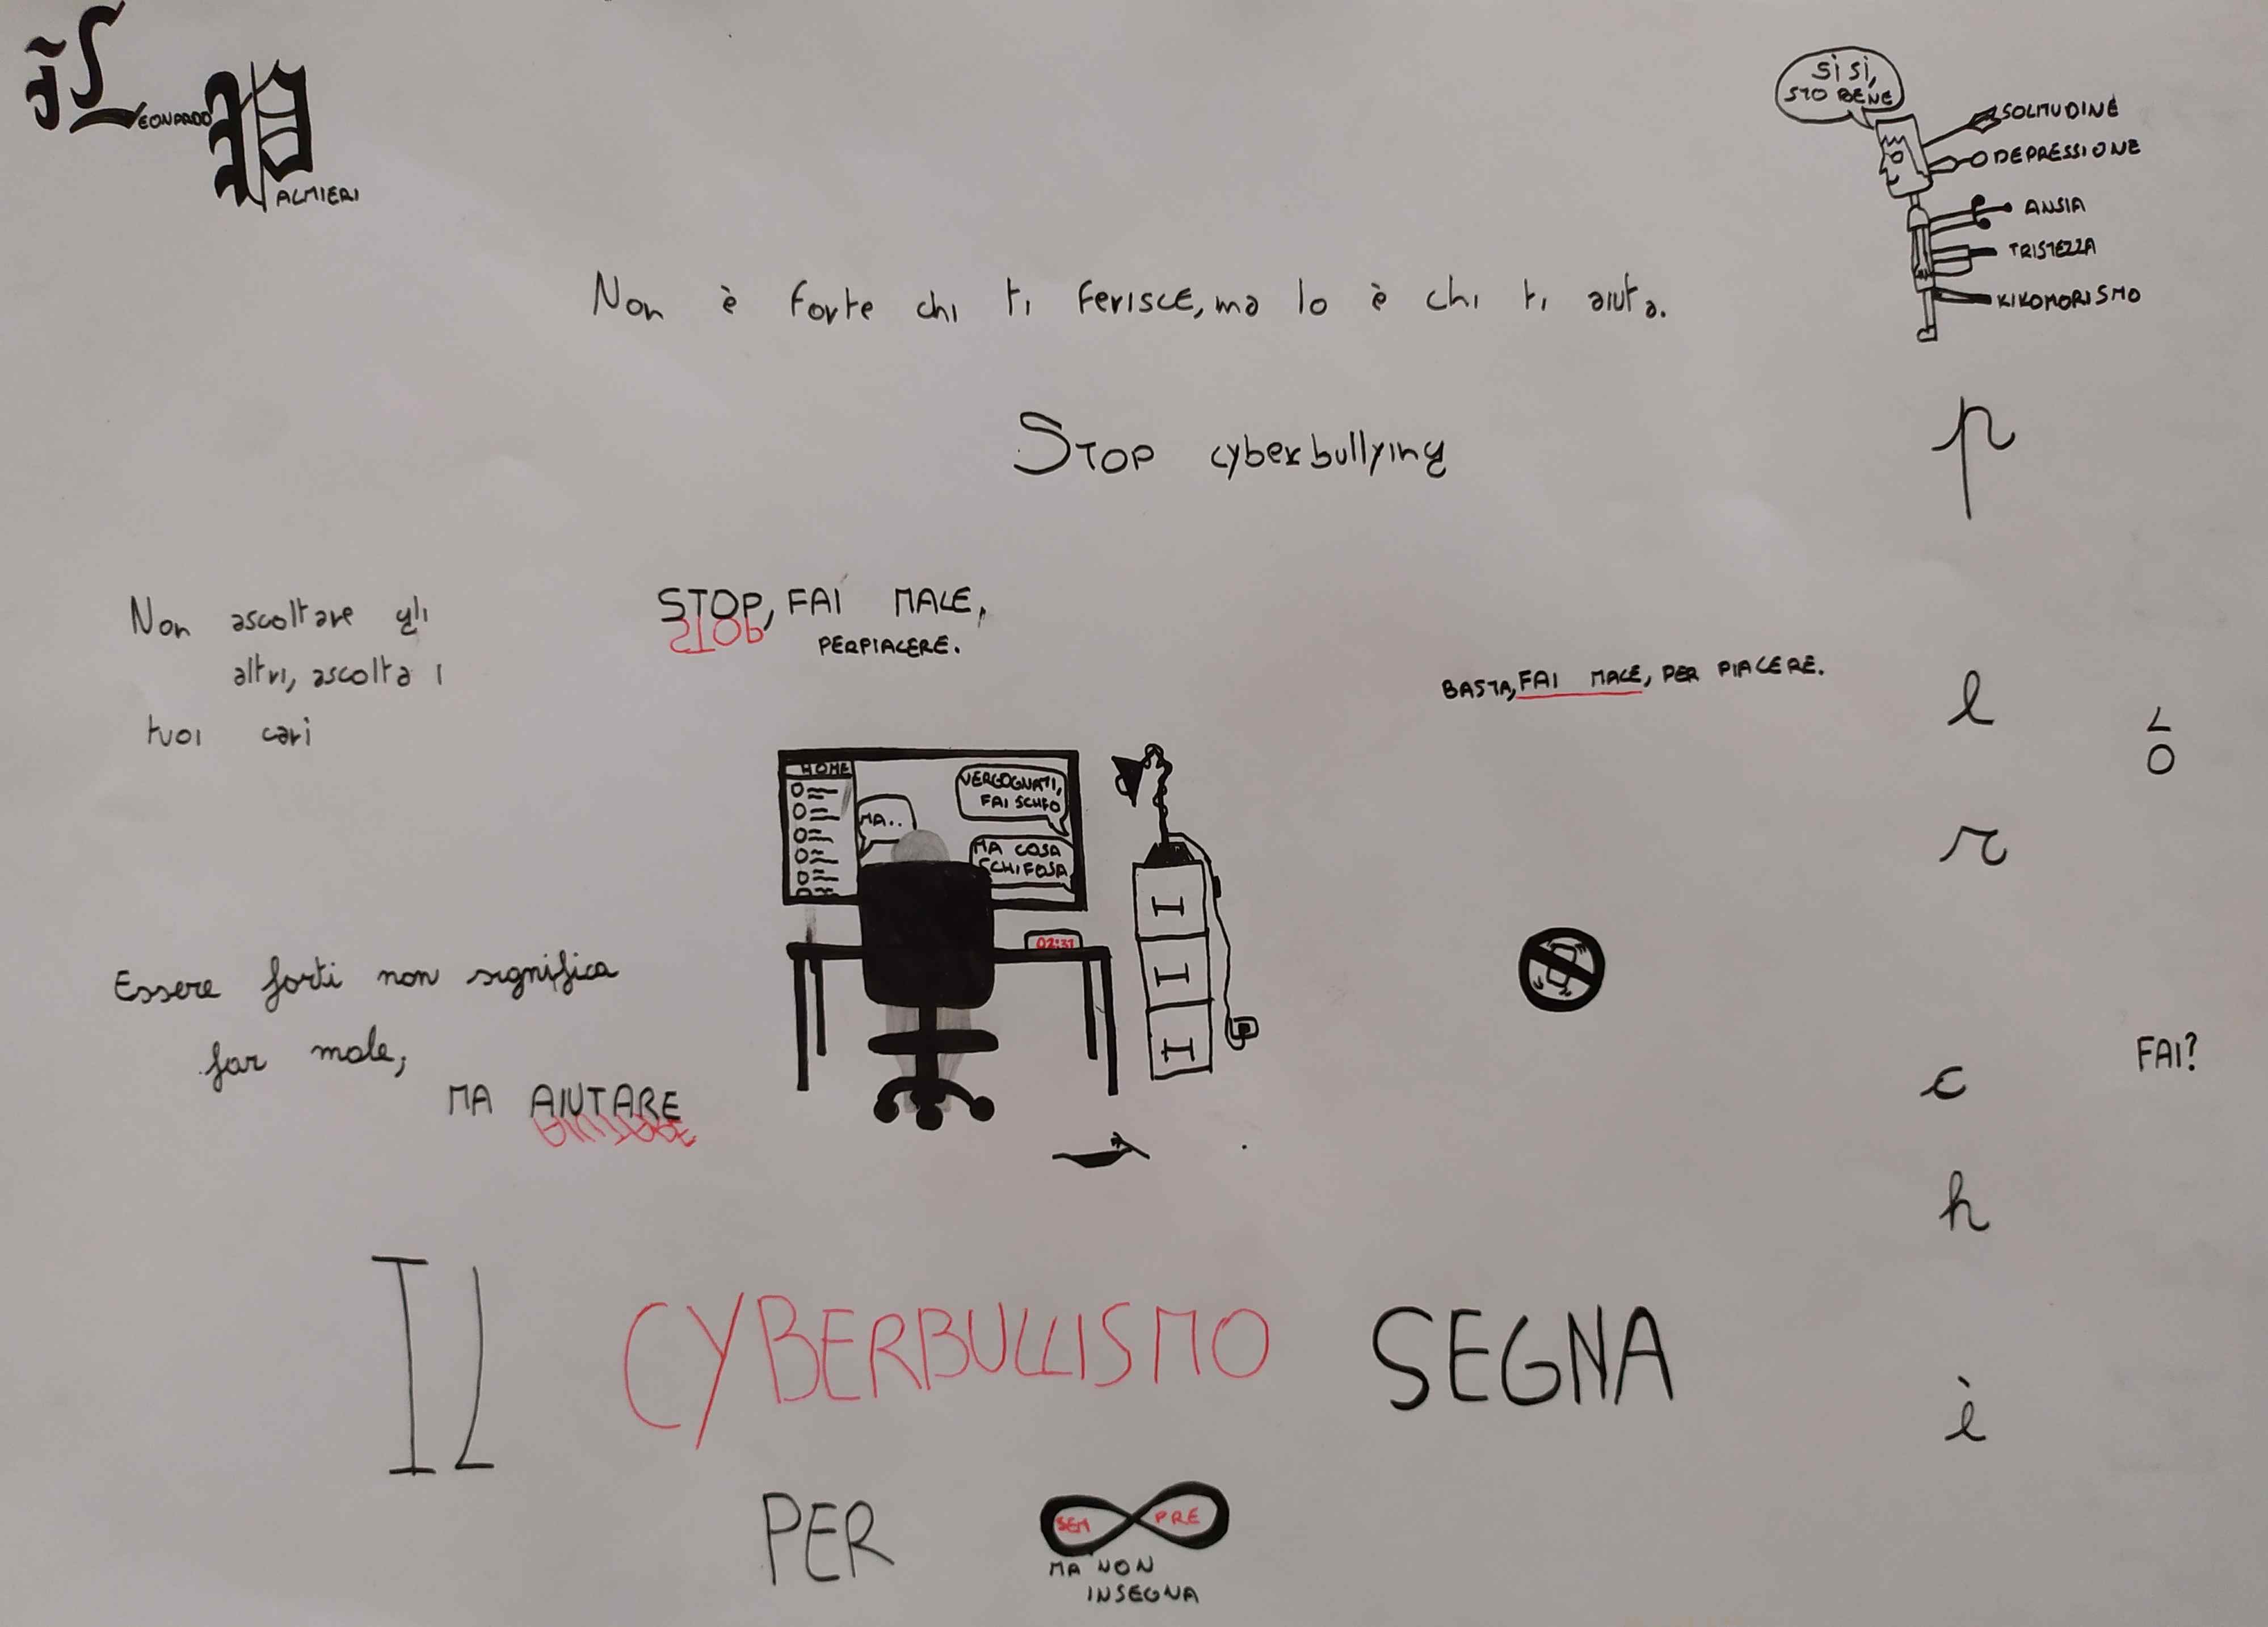 LEONARDO
PALMIERI
SÌ SÌ,
STO BENE
SOLITUDINE
DEPRESSIONE
ANSIA
TRISTEZZA
KIKOMORISMO
Non è forte chi ti ferisce, ma lo è chi ti aiuta.
STOP cyberbullying
Non ascoltare gli
altri, ascolta i
tuoi cari
STOP, FAI MALE,
STOP
PERPIACERE.
BASTA, FAI MALE, PER PIACERE.
HOME
MA..
VERGOGNATI,
FAI SCHIFO
MA COSA
SCHIFOSA
02:31
Essere forti non significa
far male,
MA AIUTARE
p
e
r
c
h
è
LO
FAI?
IL CYBERBULLISMO SEGNA
PER SEMPRE
MA NON
INSEGNA